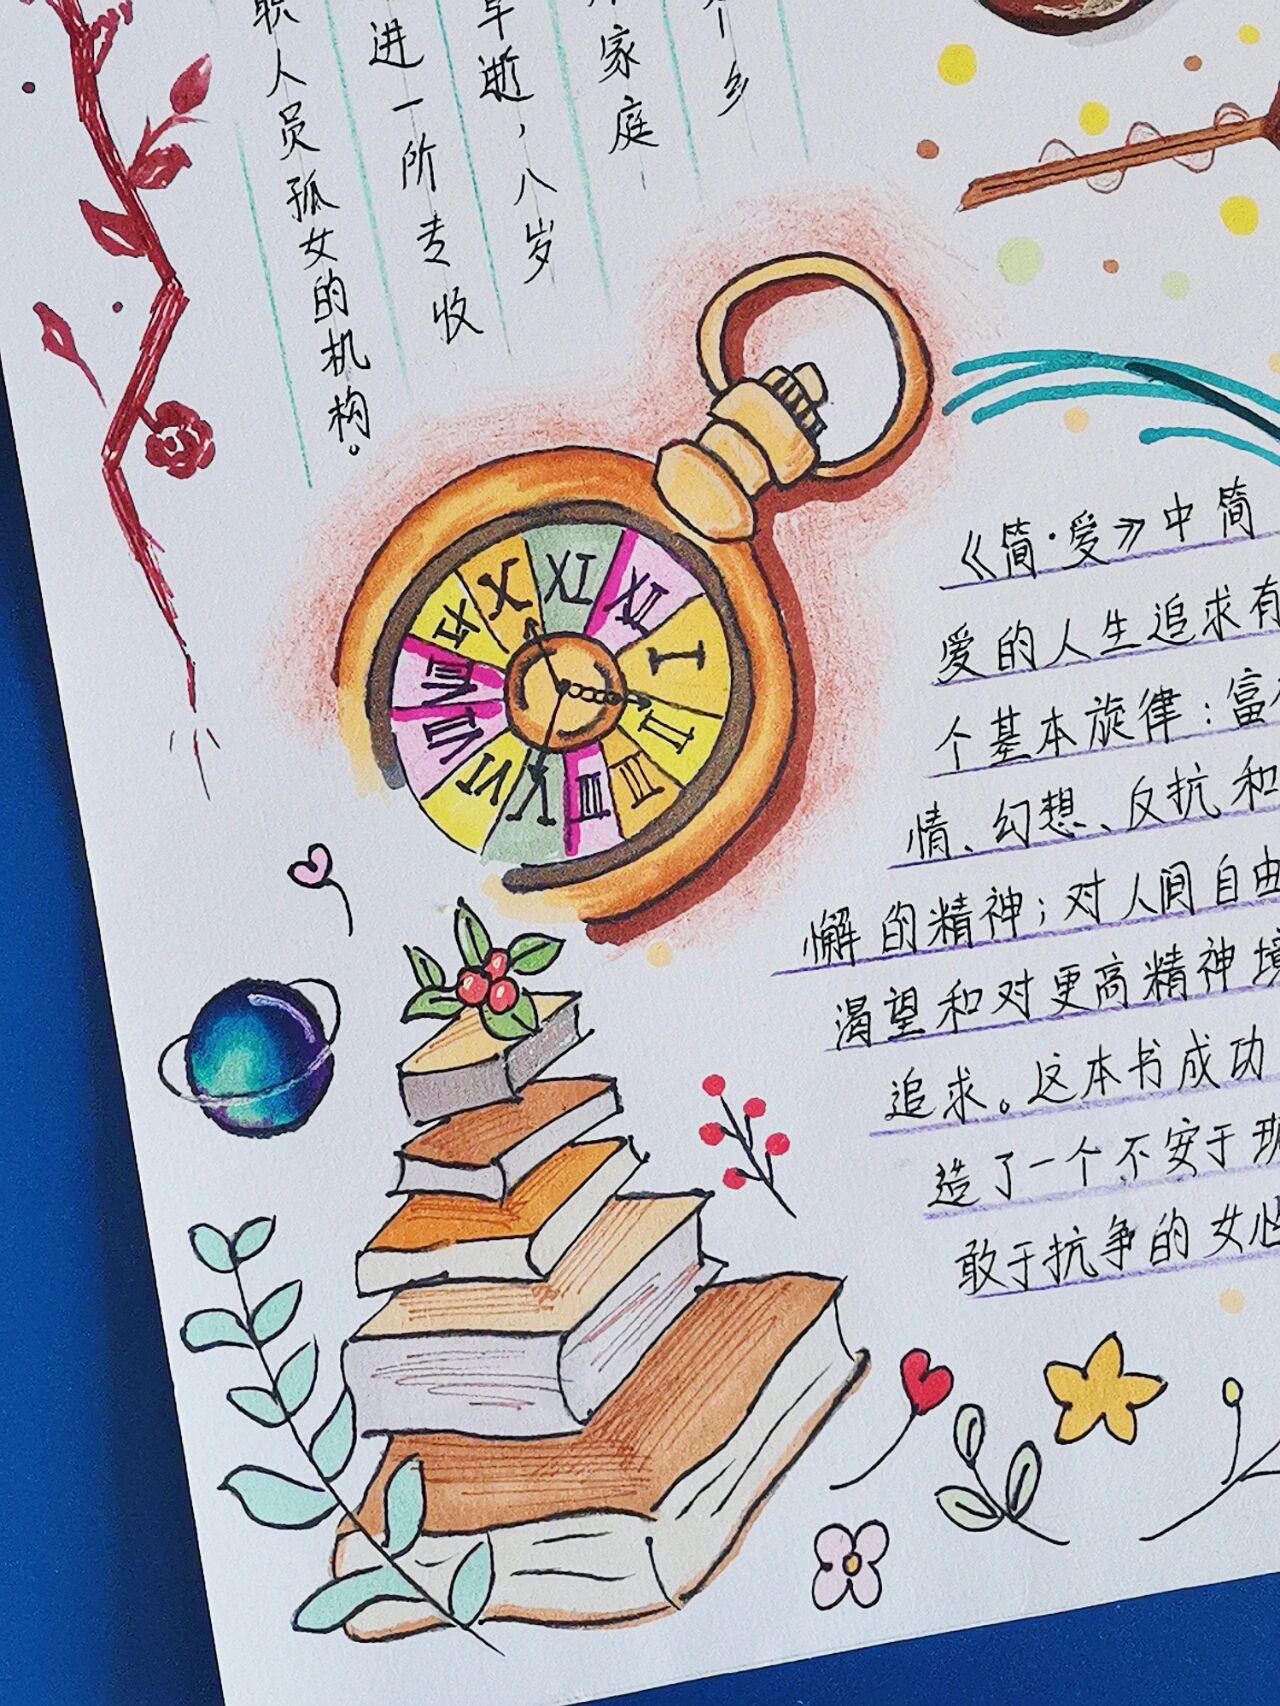 乡
家庭
早逝，八岁
进一所专收
职人员孤女的机构。
XII
I
II
III
IIII
V
VI
VII
VIII
IX
X
XI
《简·爱》中简
爱的人生追求有
个基本旋律：富
情、幻想、反抗和
懈的精神；对人间自由
渴望和对更高精神境
追求。这本书成功
造了一个不安于现
敢于抗争的女性